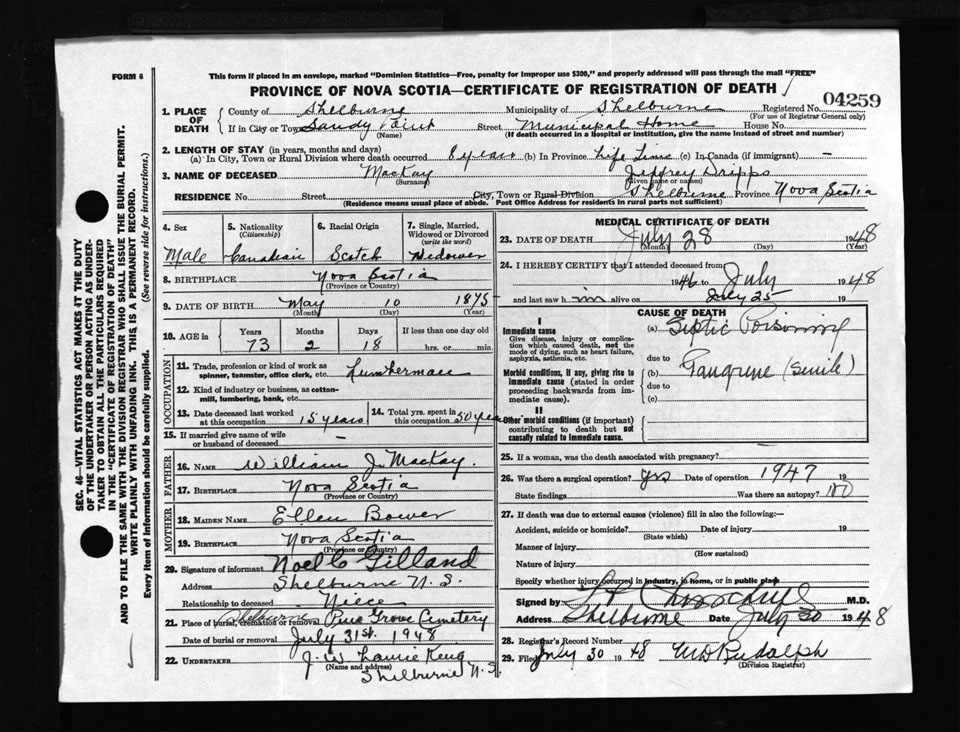 FORM 6
This form if placed in an envelope, marked "Dominion Statistics—Free, penalty for improper use $300," and properly addressed will pass through the mail "FREE"
PROVINCE OF NOVA SCOTIA—CERTIFICATE OF REGISTRATION OF DEATH
04259
1. PLACE OF DEATH
County of Shelburne Municipality of Shelburne Registered No.
(For use of Registrar General only)
If in City or Town Sandy Point Street Municipal Home House No.
(Name) (If death occurred in a hospital or institution, give the name instead of street and number)
2. LENGTH OF STAY (in years, months and days)
(a) In City, Town or Rural Division where death occurred 8 years (b) In Province Life Time (c) In Canada (if immigrant) —
3. NAME OF DECEASED MacKay Jeffrey Dripps
(Surname) (Given name or names)
RESIDENCE No. Street City, Town or Rural Division Shelburne Province Nova Scotia
(Residence means usual place of abode. Post Office Address for residents in rural parts not sufficient)
4. Sex Male
5. Nationality (Citizenship) Canadian
6. Racial Origin Scotch
7. Single, Married, Widowed or Divorced (write the word) Widower
8. BIRTHPLACE Nova Scotia
(Province or Country)
9. DATE OF BIRTH May 10 1875
(Month) (Day) (Year)
10. AGE in Years Months Days If less than one day old
73 2 18 hrs. or min.
OCCUPATION
11. Trade, profession or kind of work as spinner, teamster, office clerk, etc. Lumberman
12. Kind of industry or business, as cotton-mill, lumbering, bank, etc.
13. Date deceased last worked at this occupation 15 years
14. Total yrs. spent in this occupation 50 years
15. If married give name of wife or husband of deceased —
FATHER
16. NAME William J. MacKay.
17. BIRTHPLACE Nova Scotia
(Province or Country)
MOTHER
18. MAIDEN NAME Ellen Bower
19. BIRTHPLACE Nova Scotia
(Province or Country)
20. Signature of informant Noel C Gilland
Address Shelburne N.S.
Relationship to deceased Niece
21. Place of burial, cremation or removal Shelburne Pine Grove Cemetery
Date of burial or removal July 31st. 1948
22. UNDERTAKER J. W. Laurie
(Name and address)
Shelburne N.S.
MEDICAL CERTIFICATE OF DEATH
23. DATE OF DEATH July 28 1948
(Month) (Day) (Year)
24. I HEREBY CERTIFY that I attended deceased from
1946 to July 1948
and last saw him alive on July 25 19
CAUSE OF DEATH
I
Immediate cause
Give disease, injury or complication which caused death, not the mode of dying, such as heart failure, asphyxia, asthenia, etc.
(a) Septic Poisoning
due to
Morbid conditions, if any, giving rise to immediate cause (stated in order proceeding backwards from immediate cause).
(b) Gangrene (senile)
due to
(c)
II
Other morbid conditions (if important) contributing to death but not causally related to immediate cause.
25. If a woman, was the death associated with pregnancy?
26. Was there a surgical operation? yes Date of operation 1947 19
State findings Was there an autopsy? no
27. If death was due to external causes (violence) fill in also the following:
Accident, suicide or homicide? Date of injury 19
(State which)
Manner of injury
(How sustained)
Nature of injury
Specify whether injury occurred in industry, in home, or in public place
Signed by M.D.
Address Shelburne Date July 30 1948
28. Registrar's Record Number
29. Filed July 30 1948 M D Rudolph
(Division Registrar)
SEC. 46—VITAL STATISTICS ACT MAKES IT THE DUTY
OF THE UNDERTAKER OR PERSON ACTING AS UNDER-
TAKER TO OBTAIN ALL THE PARTICULARS REQUIRED
IN THE "CERTIFICATE OF REGISTRATION OF DEATH"
AND TO FILE THE SAME WITH THE DIVISION REGISTRAR WHO SHALL ISSUE THE BURIAL PERMIT.
WRITE PLAINLY WITH UNFADING INK. THIS IS A PERMANENT RECORD.
Every item of information should be carefully supplied. (See reverse side for instructions.)